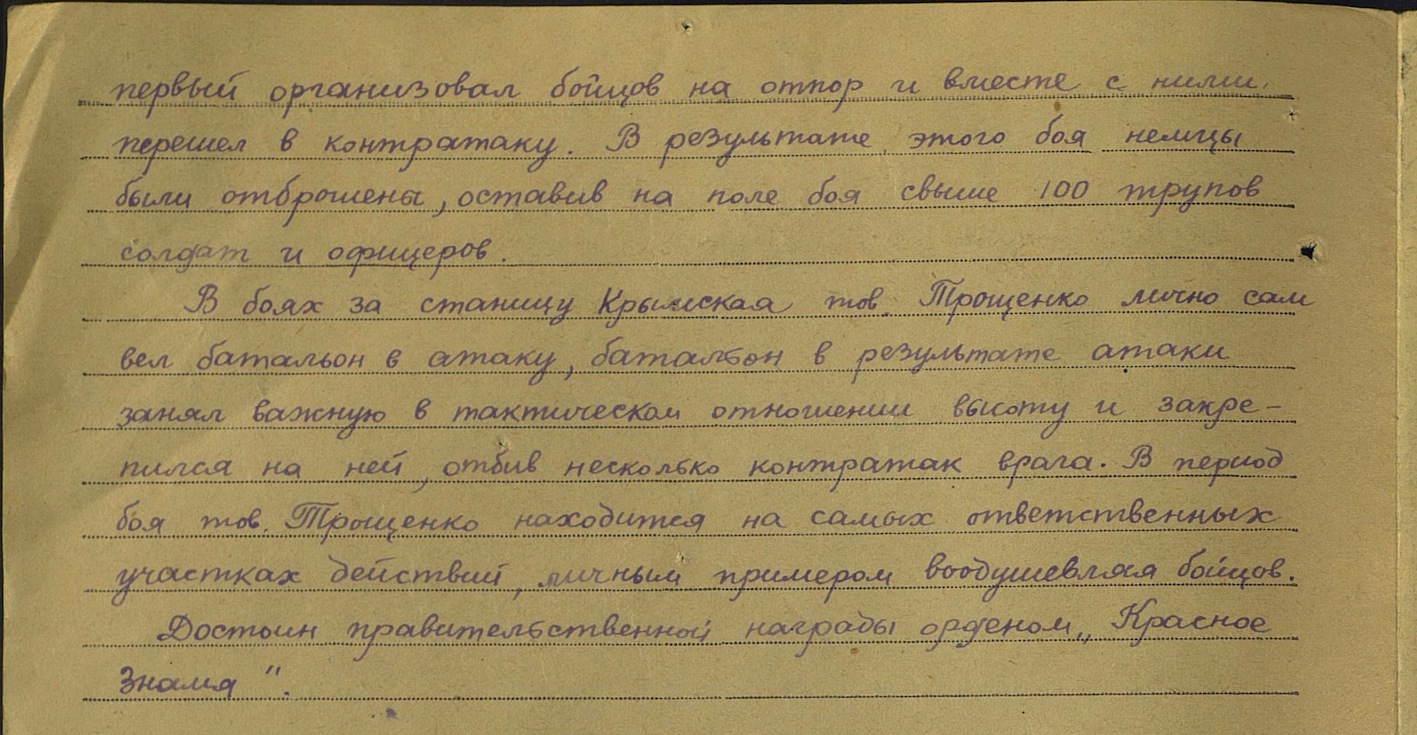 первый организовал бойцов на отпор и вместе с ними
перешел в контратаку. В результате этого боя немцы
были отброшены, оставив на поле боя свыше 100 трупов
солдат и офицеров.
В боях за станицу Крымская тов. Трощенко лично сам
вел батальон в атаку, батальон в результате атаки
занял важную в тактическом отношении высоту и закре-
пился на ней, отбив несколько контратак врага. В период
боя тов. Трощенко находится на самых ответственных
участках действий, личным примером воодушевляя бойцов.
Достоин правительственной награды орденом „Красное
Знамя".